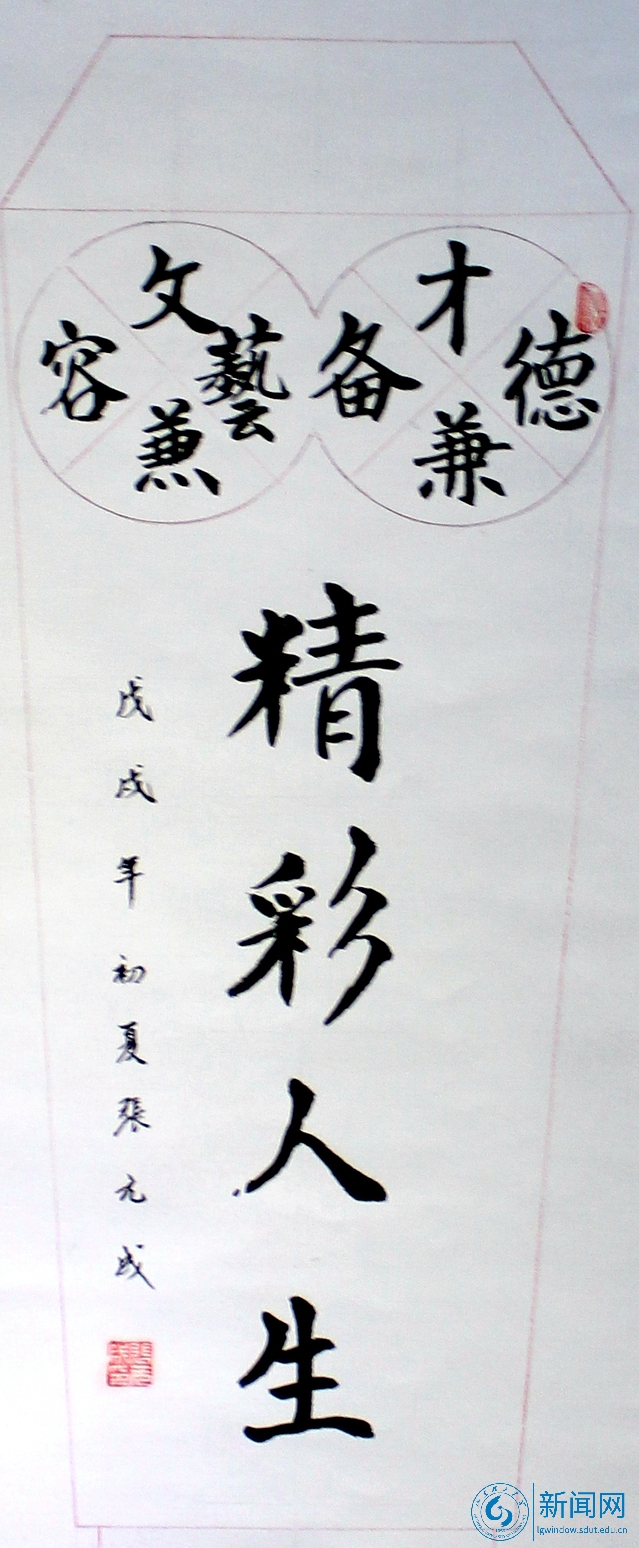 德才兼备
藝文兼容
精彩人生
戊戌年初夏張元成
新闻网
lgwindow.sdut.edu.cn